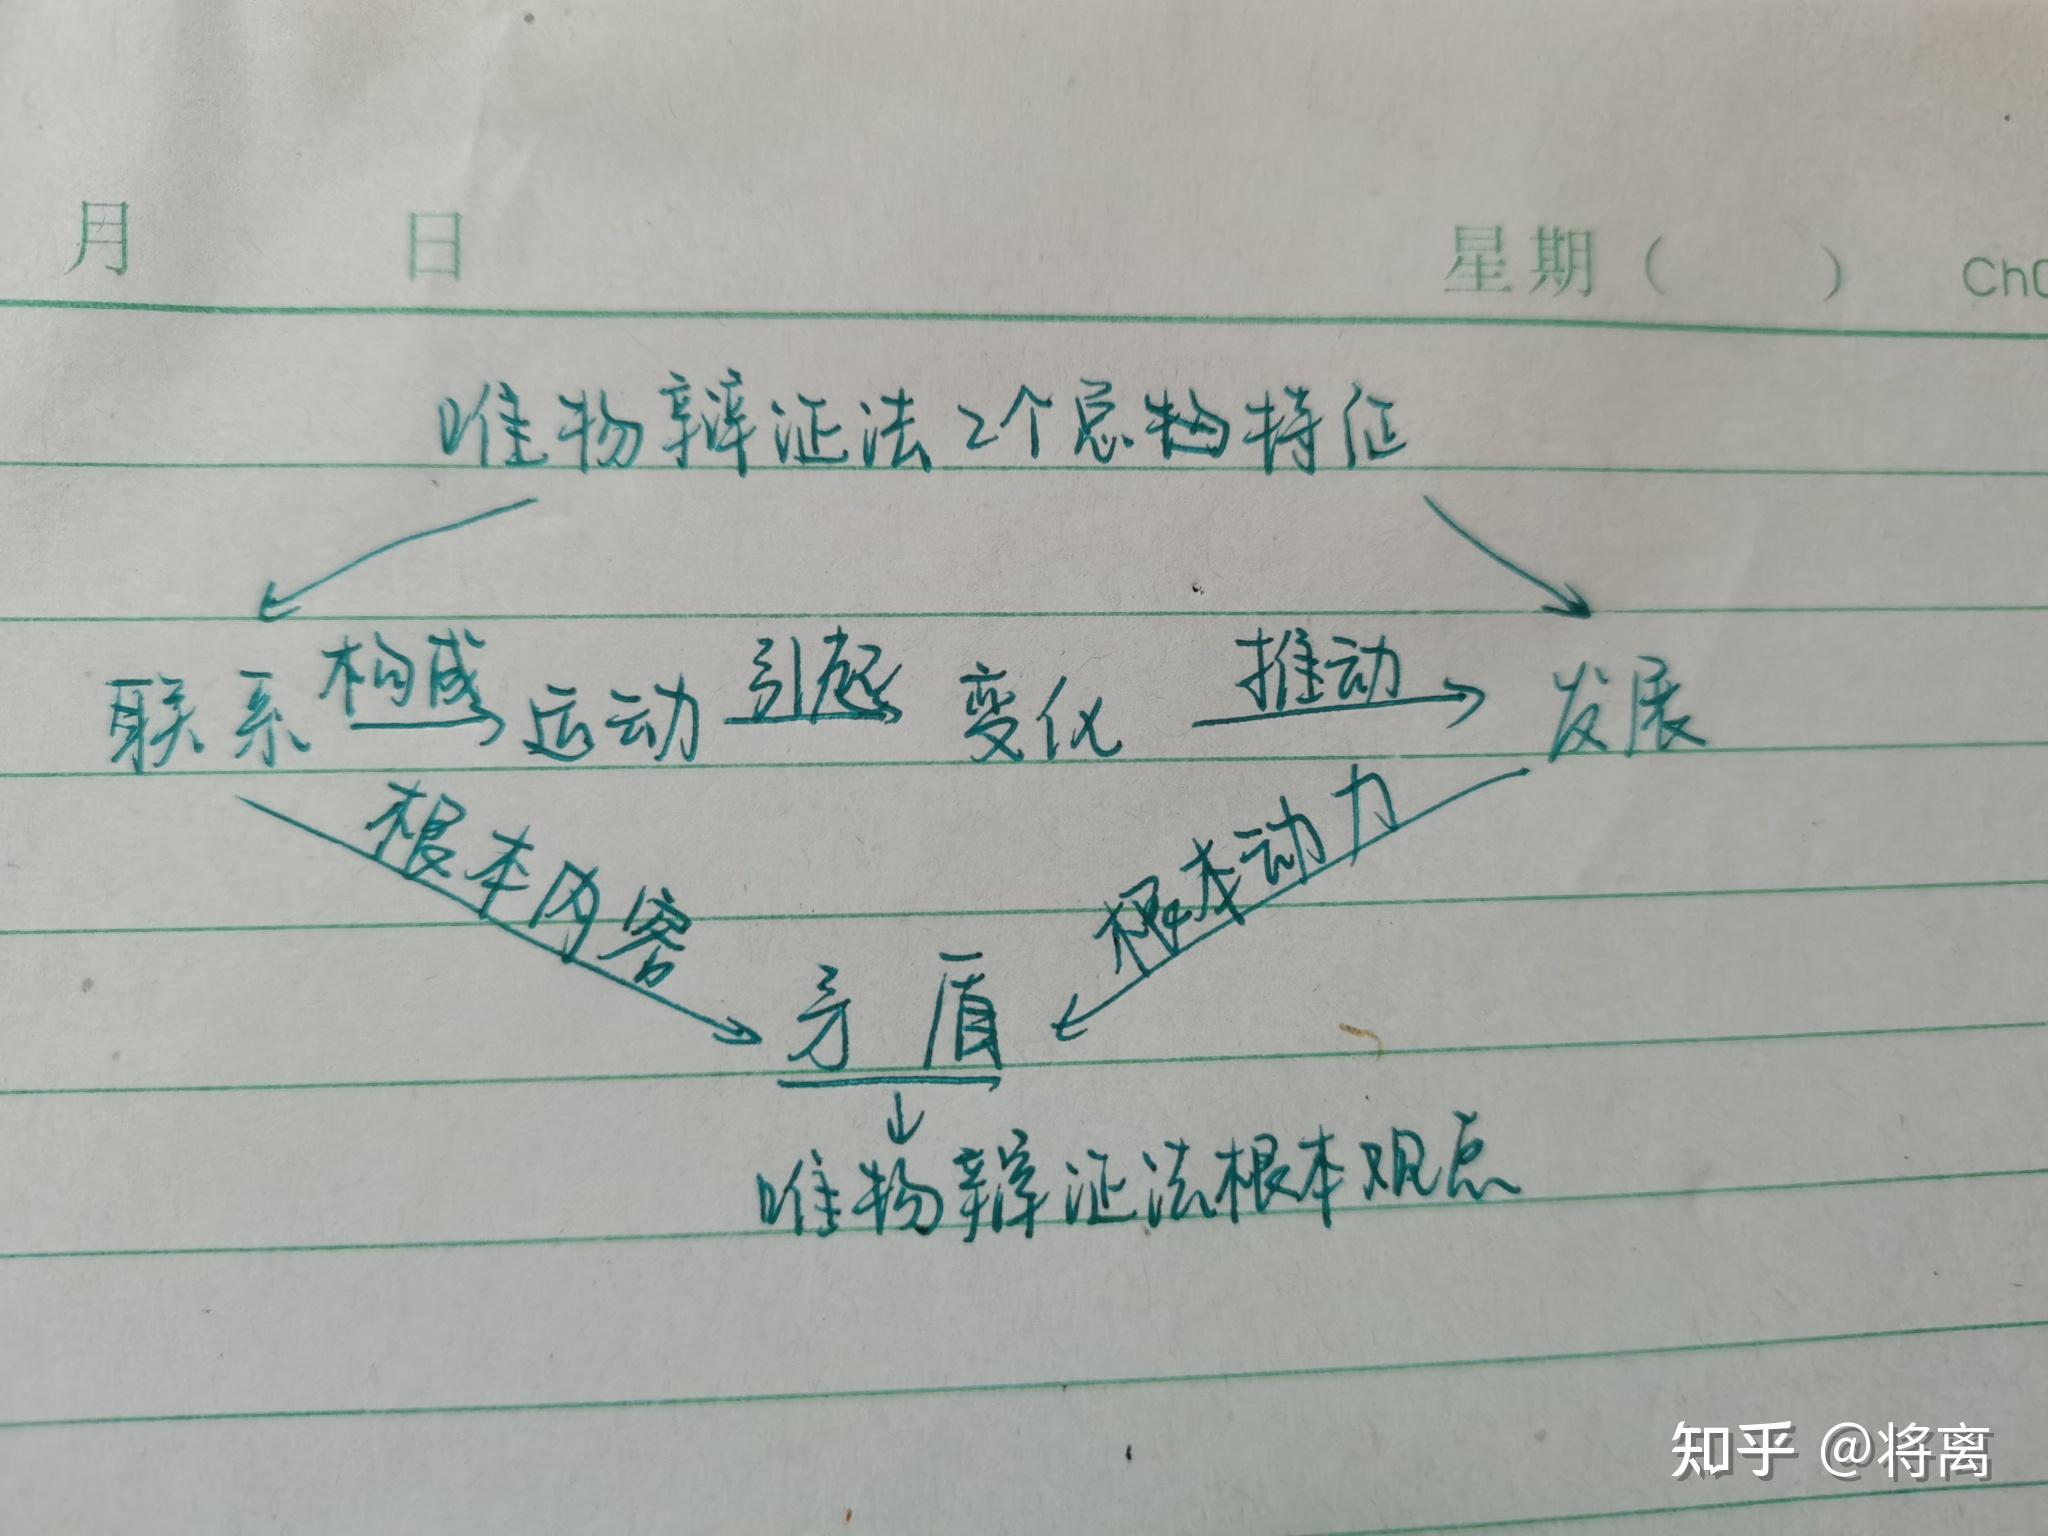 月 日 星期( ) Ch
唯物辩证法2个总物特征
构成 引起 推动
联系 运动 变化 发展
根本内容 根本动力
矛盾
唯物辩证法根本观点
知乎 @将离